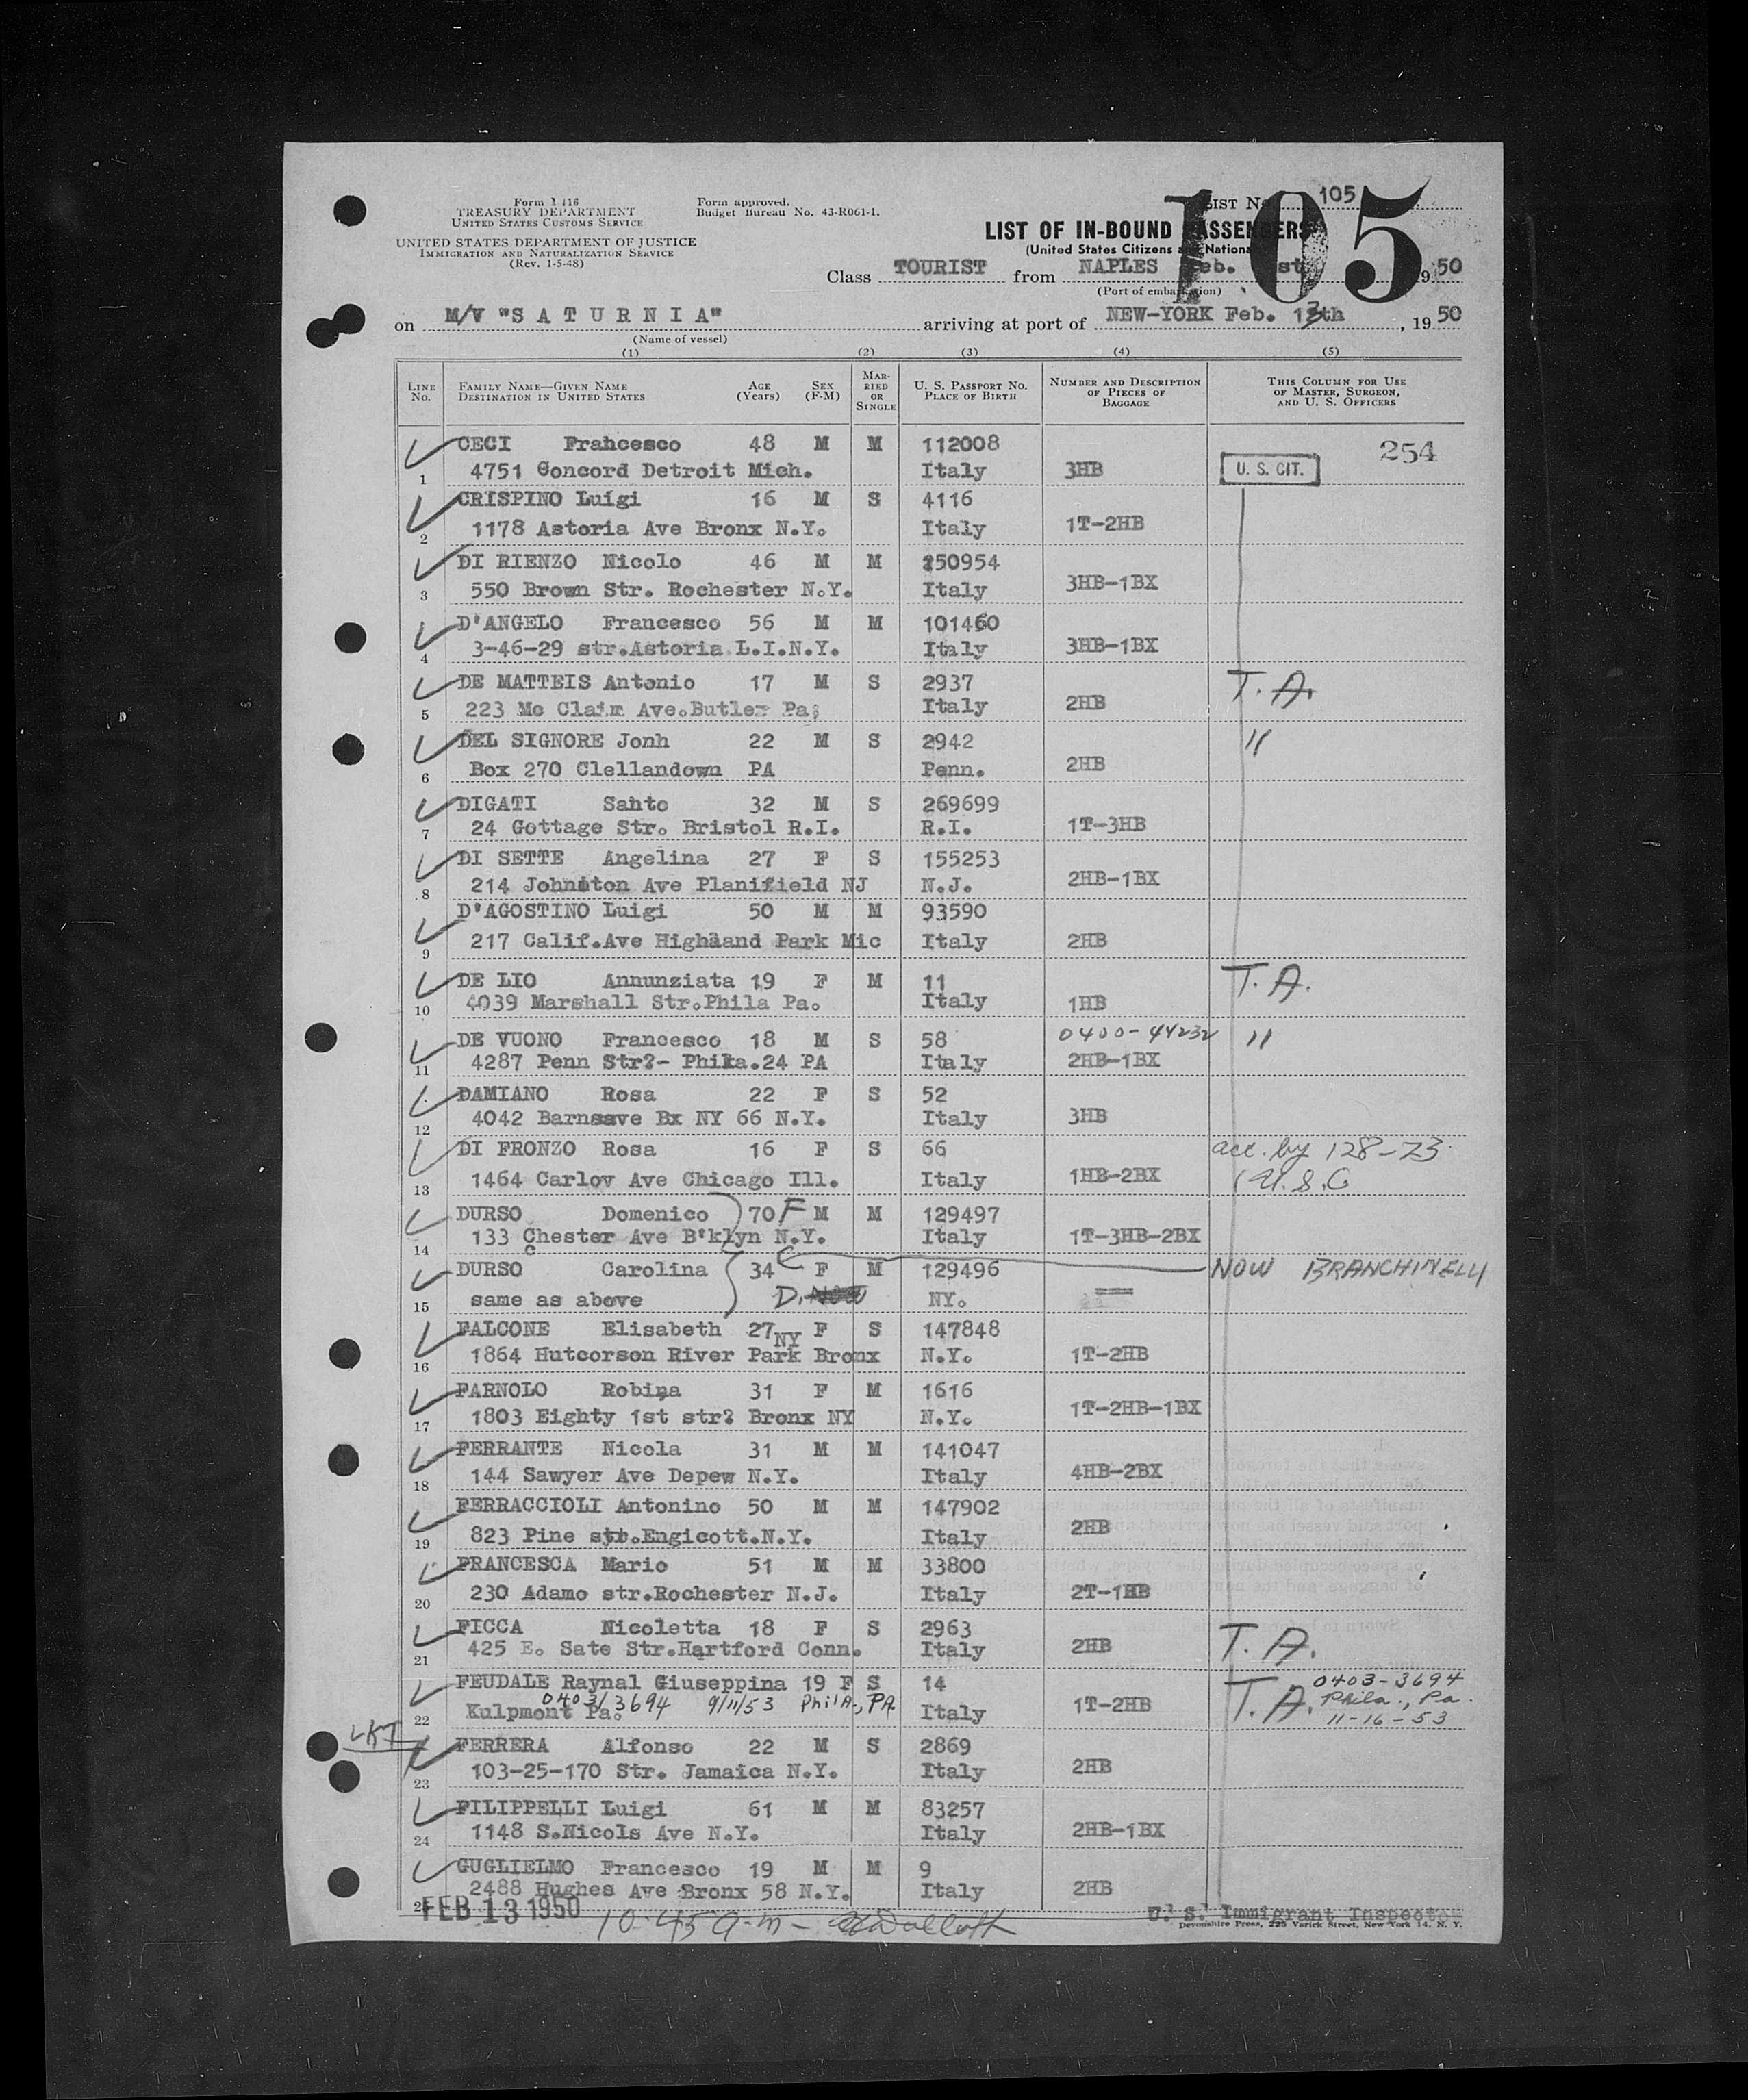 Form I 416
TREASURY DEPARTMENT
UNITED STATES CUSTOMS SERVICE
UNITED STATES DEPARTMENT OF JUSTICE
IMMIGRATION AND NATURALIZATION SERVICE
(Rev. 1-5-48)
Form approved.
Budget Bureau No. 43-R061-1.
LIST No. 105
105
LIST OF IN-BOUND PASSENGERS
(United States Citizens and Nationals)
Class TOURIST from NAPLES Feb. 1st, 1950
(Port of embarkation)
on M/V "SATURNIA" arriving at port of NEW-YORK Feb. 13th, 1950
(Name of vessel)
(1) (2) (3) (4) (5)
LINE No. FAMILY NAME—GIVEN NAME DESTINATION IN UNITED STATES AGE (Years) SEX (F-M) MARRIED OR SINGLE U. S. PASSPORT No. PLACE OF BIRTH NUMBER AND DESCRIPTION OF PIECES OF BAGGAGE THIS COLUMN FOR USE OF MASTER, SURGEON, AND U. S. OFFICERS
CECI Frahcesco 48 M M 112008 254
1 4751 Goncord Detroit Mich. Italy 3HB U. S. CIT.
CRISPINO Luigi 16 M S 4116
2 1178 Astoria Ave Bronx N.Y. Italy 1T-2HB
DI RIENZO Nicolo 46 M M 250954
3 550 Brown Str. Rochester N.Y. Italy 3HB-1BX
D'ANGELO Francesco 56 M M 101460
4 3-46-29 str.Astoria L.I.N.Y. Italy 3HB-1BX
DE MATTEIS Antonio 17 M S 2937 T. A.
5 223 Mc Claim Ave.Butler Pa; Italy 2HB
DEL SIGNORE Jonh 22 M S 2942 "
6 Box 270 Clellandown PA Penn. 2HB
DIGATI Sahto 32 M S 269699
7 24 Gottage Str. Bristol R.I. R.I. 1T-3HB
DI SETTE Angelina 27 F S 155253
8 214 Johnston Ave Planifield NJ N.J. 2HB-1BX
D'AGOSTINO Luigi 50 M M 93590
9 217 Calif.Ave Highland Park Mic Italy 2HB
DE LIO Annunziata 19 F M 11 T. A.
10 4039 Marshall Str.Phila Pa. Italy 1HB
DE VUONO Francesco 18 M S 58 0400-44232 "
11 4287 Penn Str?- Phika.24 PA Italy 2HB-1BX
DAMIANO Rosa 22 F S 52
12 4042 Barnsave Bx NY 66 N.Y. Italy 3HB
DI FRONZO Rosa 16 F S 66 acc. by 128-23
13 1464 Carlov Ave Chicago Ill. Italy 1HB-2BX U.S.C
DURSO Domenico 70 F M M 129497
14 133 Chester Ave B'klyn N.Y. Italy 1T-3HB-2BX
DURSO Carolina 34 F M 129496 NOW BRANCHINELLI
15 same as above D. NY.
FALCONE Elisabeth 27 NY F S 147848
16 1864 Hutcorson River Park Bronx N.Y. 1T-2HB
FARNOLO Robina 31 F M 1616
17 1803 Eighty 1st str? Bronx NY N.Y. 1T-2HB-1BX
FERRANTE Nicola 31 M M 141047
18 144 Sawyer Ave Depew N.Y. Italy 4HB-2BX
FERRACCIOLI Antonino 50 M M 147902
19 823 Pine str.Engicott.N.Y. Italy 2HB
FRANCESCA Mario 51 M M 33800
20 230 Adamo str.Rochester N.J. Italy 2T-1HB
FICCA Nicoletta 18 F S 2963 T. A.
21 425 E. Sate Str.Hartford Conn. Italy 2HB
FEUDALE Raynal Giuseppina 19 F S 14 T. A. 0403-3694
22 Kulpmont Pa. 0403/3694 9/11/53 Phila., PA. Italy 1T-2HB Phila., Pa.
11-16-53
FERRERA Alfonso 22 M S 2869
23 103-25-170 Str. Jamaica N.Y. Italy 2HB
FILIPPELLI Luigi 61 M M 83257
24 1148 S.Nicols Ave N.Y. Italy 2HB-1BX
GUGLIELMO Francesco 19 M M 9
25 2488 Hughes Ave Bronx 58 N.Y. Italy 2HB
FEB 13 1950 10-45 a-m- U. S. Immigrant Inspector
Devonshire Press, 225 Varick Street, New York 14, N. Y.